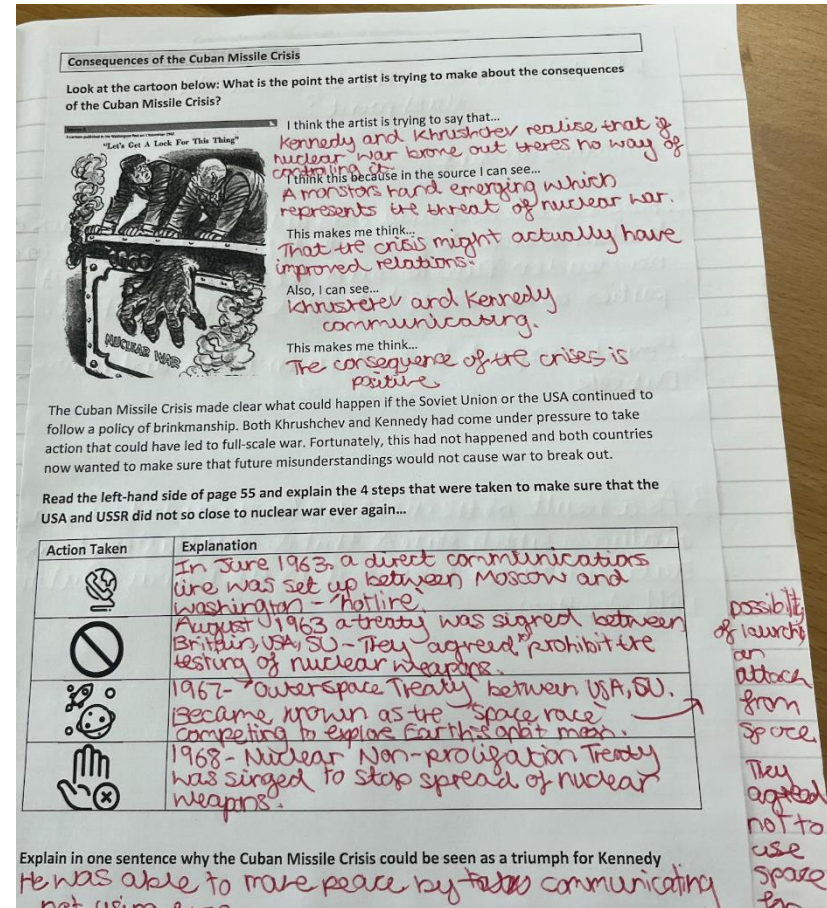 Consequences of the Cuban Missile Crisis
Look at the cartoon below: What is the point the artist is trying to make about the consequences
of the Cuban Missile Crisis?
"Let's Get A Lock For This Thing"
NUCLEAR WAR
I think the artist is trying to say that...
Kennedy and Khrushchev realise that if
nuclear war brone out theres no way of
controling it.
I think this because in the source I can see...
A monstors hand emerging which
represents the threat of nuclear war.
This makes me think...
That the crisis might actually have
improved relations.
Also, I can see...
Khrushchev and Kennedy
communicating.
This makes me think...
The consequence of the crises is
positive
The Cuban Missile Crisis made clear what could happen if the Soviet Union or the USA continued to
follow a policy of brinkmanship. Both Khrushchev and Kennedy had come under pressure to take
action that could have led to full-scale war. Fortunately, this had not happened and both countries
now wanted to make sure that future misunderstandings would not cause war to break out.
Read the left-hand side of page 55 and explain the 4 steps that were taken to make sure that the
USA and USSR did not so close to nuclear war ever again...
Action Taken
Explanation
In June 1963, a direct communications
line was set up between Moscow and
Washington - "hotline"
August 1963 a treaty was signed between
Brittain, USA, SU - They "agreed" prohibit the
testing of nuclear weapons.
1967 - "Outerspace Treaty" between USA, SU.
Became known as the "space race"
competing to explore Earth's orbit moon.
1968 - Nuclear Non-proligation Treaty
was singed to stop spread of nuclear
weapons.
possibility
of launching
an
attack
from
space
They
agreed
not to
use
space
for
Explain in one sentence why the Cuban Missile Crisis could be seen as a triumph for Kennedy
He was able to make peace by communicating
not using